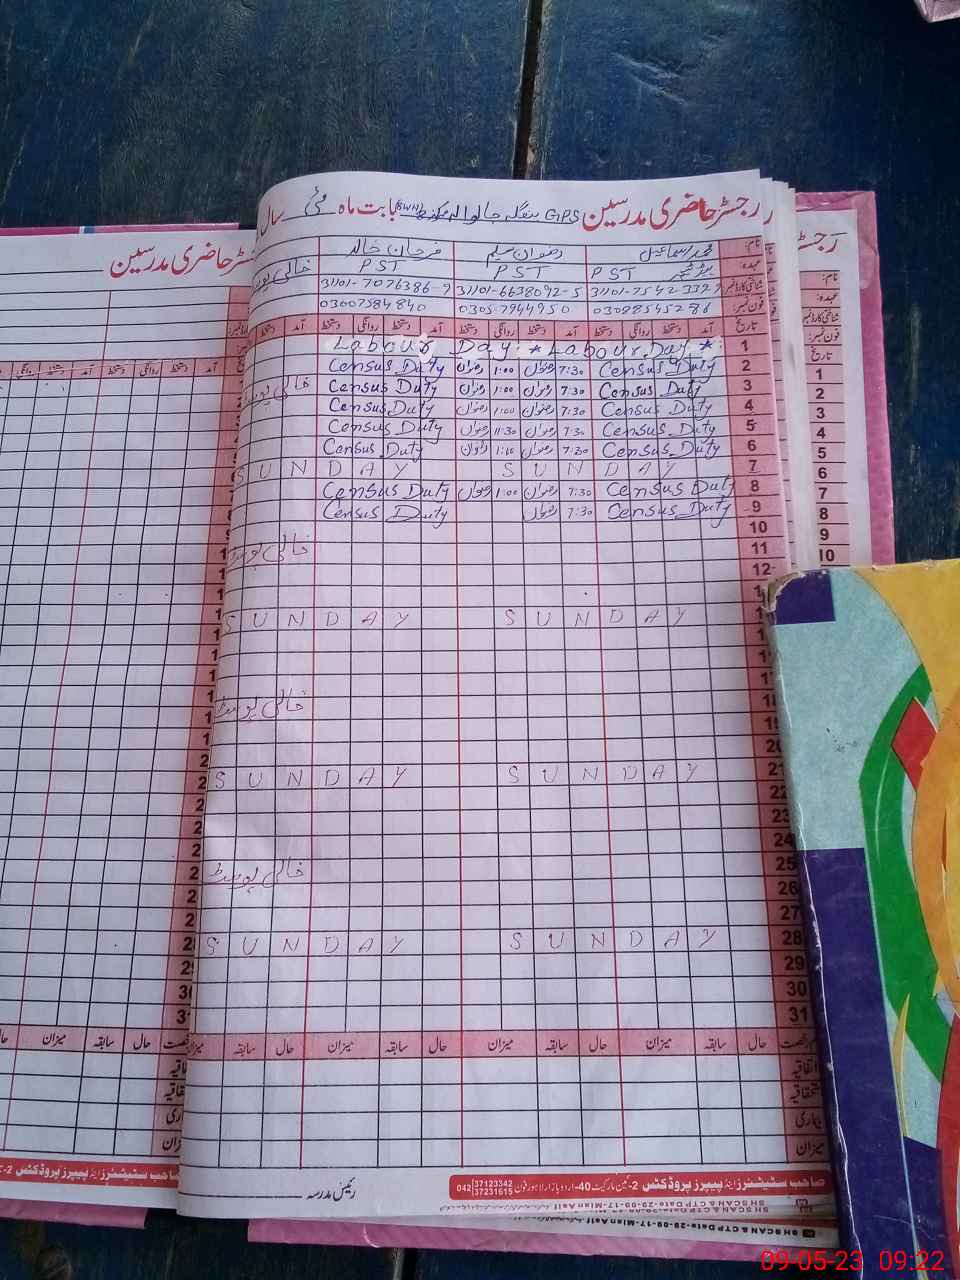 رجسٹر حاضری مدرسین GPS بابت ماہ مئی سال
نام: محمد اسماعیل رضوان سلیم فرحان خالد
عہدہ: PST PST PST خالی پوسٹ
شناختی کارڈ نمبر 31101-6638092-5 31101-7076386-9
فون نمبر: 03088545286 0305-7944950 03007584840
تاریخ آمد دستخط روانگی دستخط آمد دستخط روانگی دستخط آمد دستخط روانگی دستخط آمد دستخط
1 Labour Day * Labour Day *
2 Census Duty 7:30 رضوان 1:00 رضوان Census Duty
3 Census Duty 7:30 رضوان 1:00 رضوان Census Duty خالی پوسٹ
4 Census Duty 7:30 رضوان 1:00 رضوان Census Duty
5 Census Duty 7:30 رضوان 11:30 رضوان Census Duty
6 Census Duty 7:30 رضوان رضوان Census Duty
7 SUNDAY SUNDAY
8 Census Duty 7:30 رضوان 1:00 رضوان Census Duty
9 Census Duty 7:30 رضوان Census Duty
10
11 خالی پوسٹ
12
SUNDAY SUNDAY
خالی پوسٹ
21 SUNDAY SUNDAY
22
23
24
25 خالی پوسٹ
26
27
28 SUNDAY SUNDAY
29
30
31
حال سابقہ میزان حال سابقہ میزان حال سابقہ میزان
اتفاقیہ
بیماری
میزان
رئیس مدرسہ
صاحب سٹیشنرز اینڈ پیپرز پروڈکٹس 2-ٹمین مارکیٹ 40-اردو بازار لاہور فون 042 37123342 37231615
SH SCAN & CTP Date-29-09-17-Mian Asif
رجسٹر حاضری مدرسین
نام:
عہدہ:
شناختی کارڈ نمبر
فون نمبر:
تاریخ
1
2
3
4
5
6
7
8
10
09-05-23 09:22